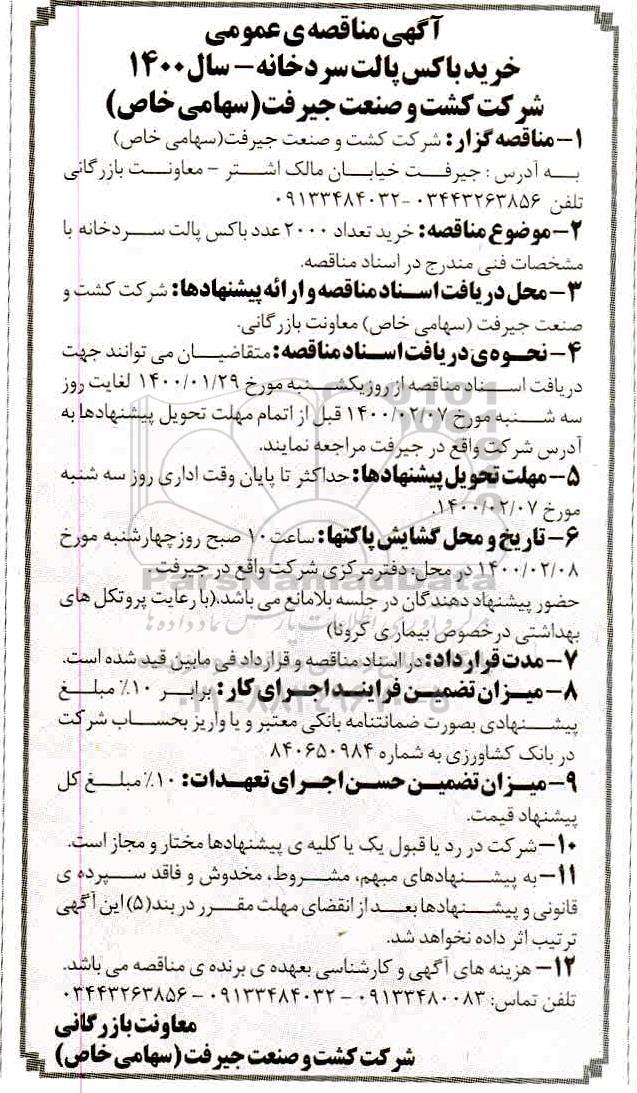 آگهی مناقصه ی عمومی
خرید باکس پالت سردخانه - سال ۱۴۰۰
شرکت کشت و صنعت جیرفت (سهامی خاص)
۱- مناقصه گزار: شرکت کشت و صنعت جیرفت(سهامی خاص)
به آدرس : جیرفت خیابان مالک اشتر - معاونت بازرگانی
تلفن ۰۳۴۴۳۲۶۳۸۵۶ -۰۹۱۳۳۴۸۴۰۳۲
۲- موضوع مناقصه: خرید تعداد ۲۰۰۰ عدد باکس پالت سردخانه با
مشخصات فنی مندرج در اسناد مناقصه.
۳- محل دریافت اسناد مناقصه و ارائه پیشنهادها: شرکت کشت و
صنعت جیرفت (سهامی خاص) معاونت بازرگانی.
۴- نحوه ی دریافت اسناد مناقصه: متقاضیان می توانند جهت
دریافت اسناد مناقصه از روز یکشنبه مورخ ۱۴۰۰/۰۱/۲۹ لغایت روز
سه شنبه مورخ ۱۴۰۰/۰۲/۰۷ قبل از اتمام مهلت تحویل پیشنهادها به
آدرس شرکت واقع در جیرفت مراجعه نمایند.
۵- مهلت تحویل پیشنهادها: حداکثر تا پایان وقت اداری روز سه شنبه
مورخ ۱۴۰۰/۰۲/۰۷.
۶- تاریخ و محل گشایش پاکتها: ساعت ۱۰ صبح روز چهارشنبه مورخ
۱۴۰۰/۰۲/۰۸ در محل: دفتر مرکزی شرکت واقع در جیرفت.
حضور پیشنهاد دهندگان در جلسه بلامانع می باشد.(با رعایت پروتکل های
بهداشتی در خصوص بیماری کرونا)
۷- مدت قرارداد: در اسناد مناقصه و قرارداد فی مابین قید شده است.
۸- میزان تضمین فرایند اجرای کار: برابر ۱۰٪ مبلغ
پیشنهادی بصورت ضمانتنامه بانکی معتبر و یا واریز بحساب شرکت
در بانک کشاورزی به شماره ۸۴۰۶۵۰۹۸۴
۹- میزان تضمین حسن اجرای تعهدات: ۱۰٪ مبلغ کل
پیشنهاد قیمت.
۱۰- شرکت در رد یا قبول یک یا کلیه ی پیشنهادها مختار و مجاز است.
۱۱- به پیشنهادهای مبهم، مشروط، مخدوش و فاقد سپرده ی
قانونی و پیشنهادها بعد از انقضای مهلت مقرر در بند(۵) این آگهی
ترتیب اثر داده نخواهد شد.
۱۲- هزینه های آگهی و کارشناسی بعهده ی برنده ی مناقصه می باشد.
تلفن تماس: ۰۹۱۳۳۴۸۰۰۸۳ - ۰۹۱۳۳۴۸۴۰۳۲ - ۰۳۴۴۳۲۶۳۸۵۶
معاونت بازرگانی
شرکت کشت و صنعت جیرفت (سهامی خاص)
ParsNamadData